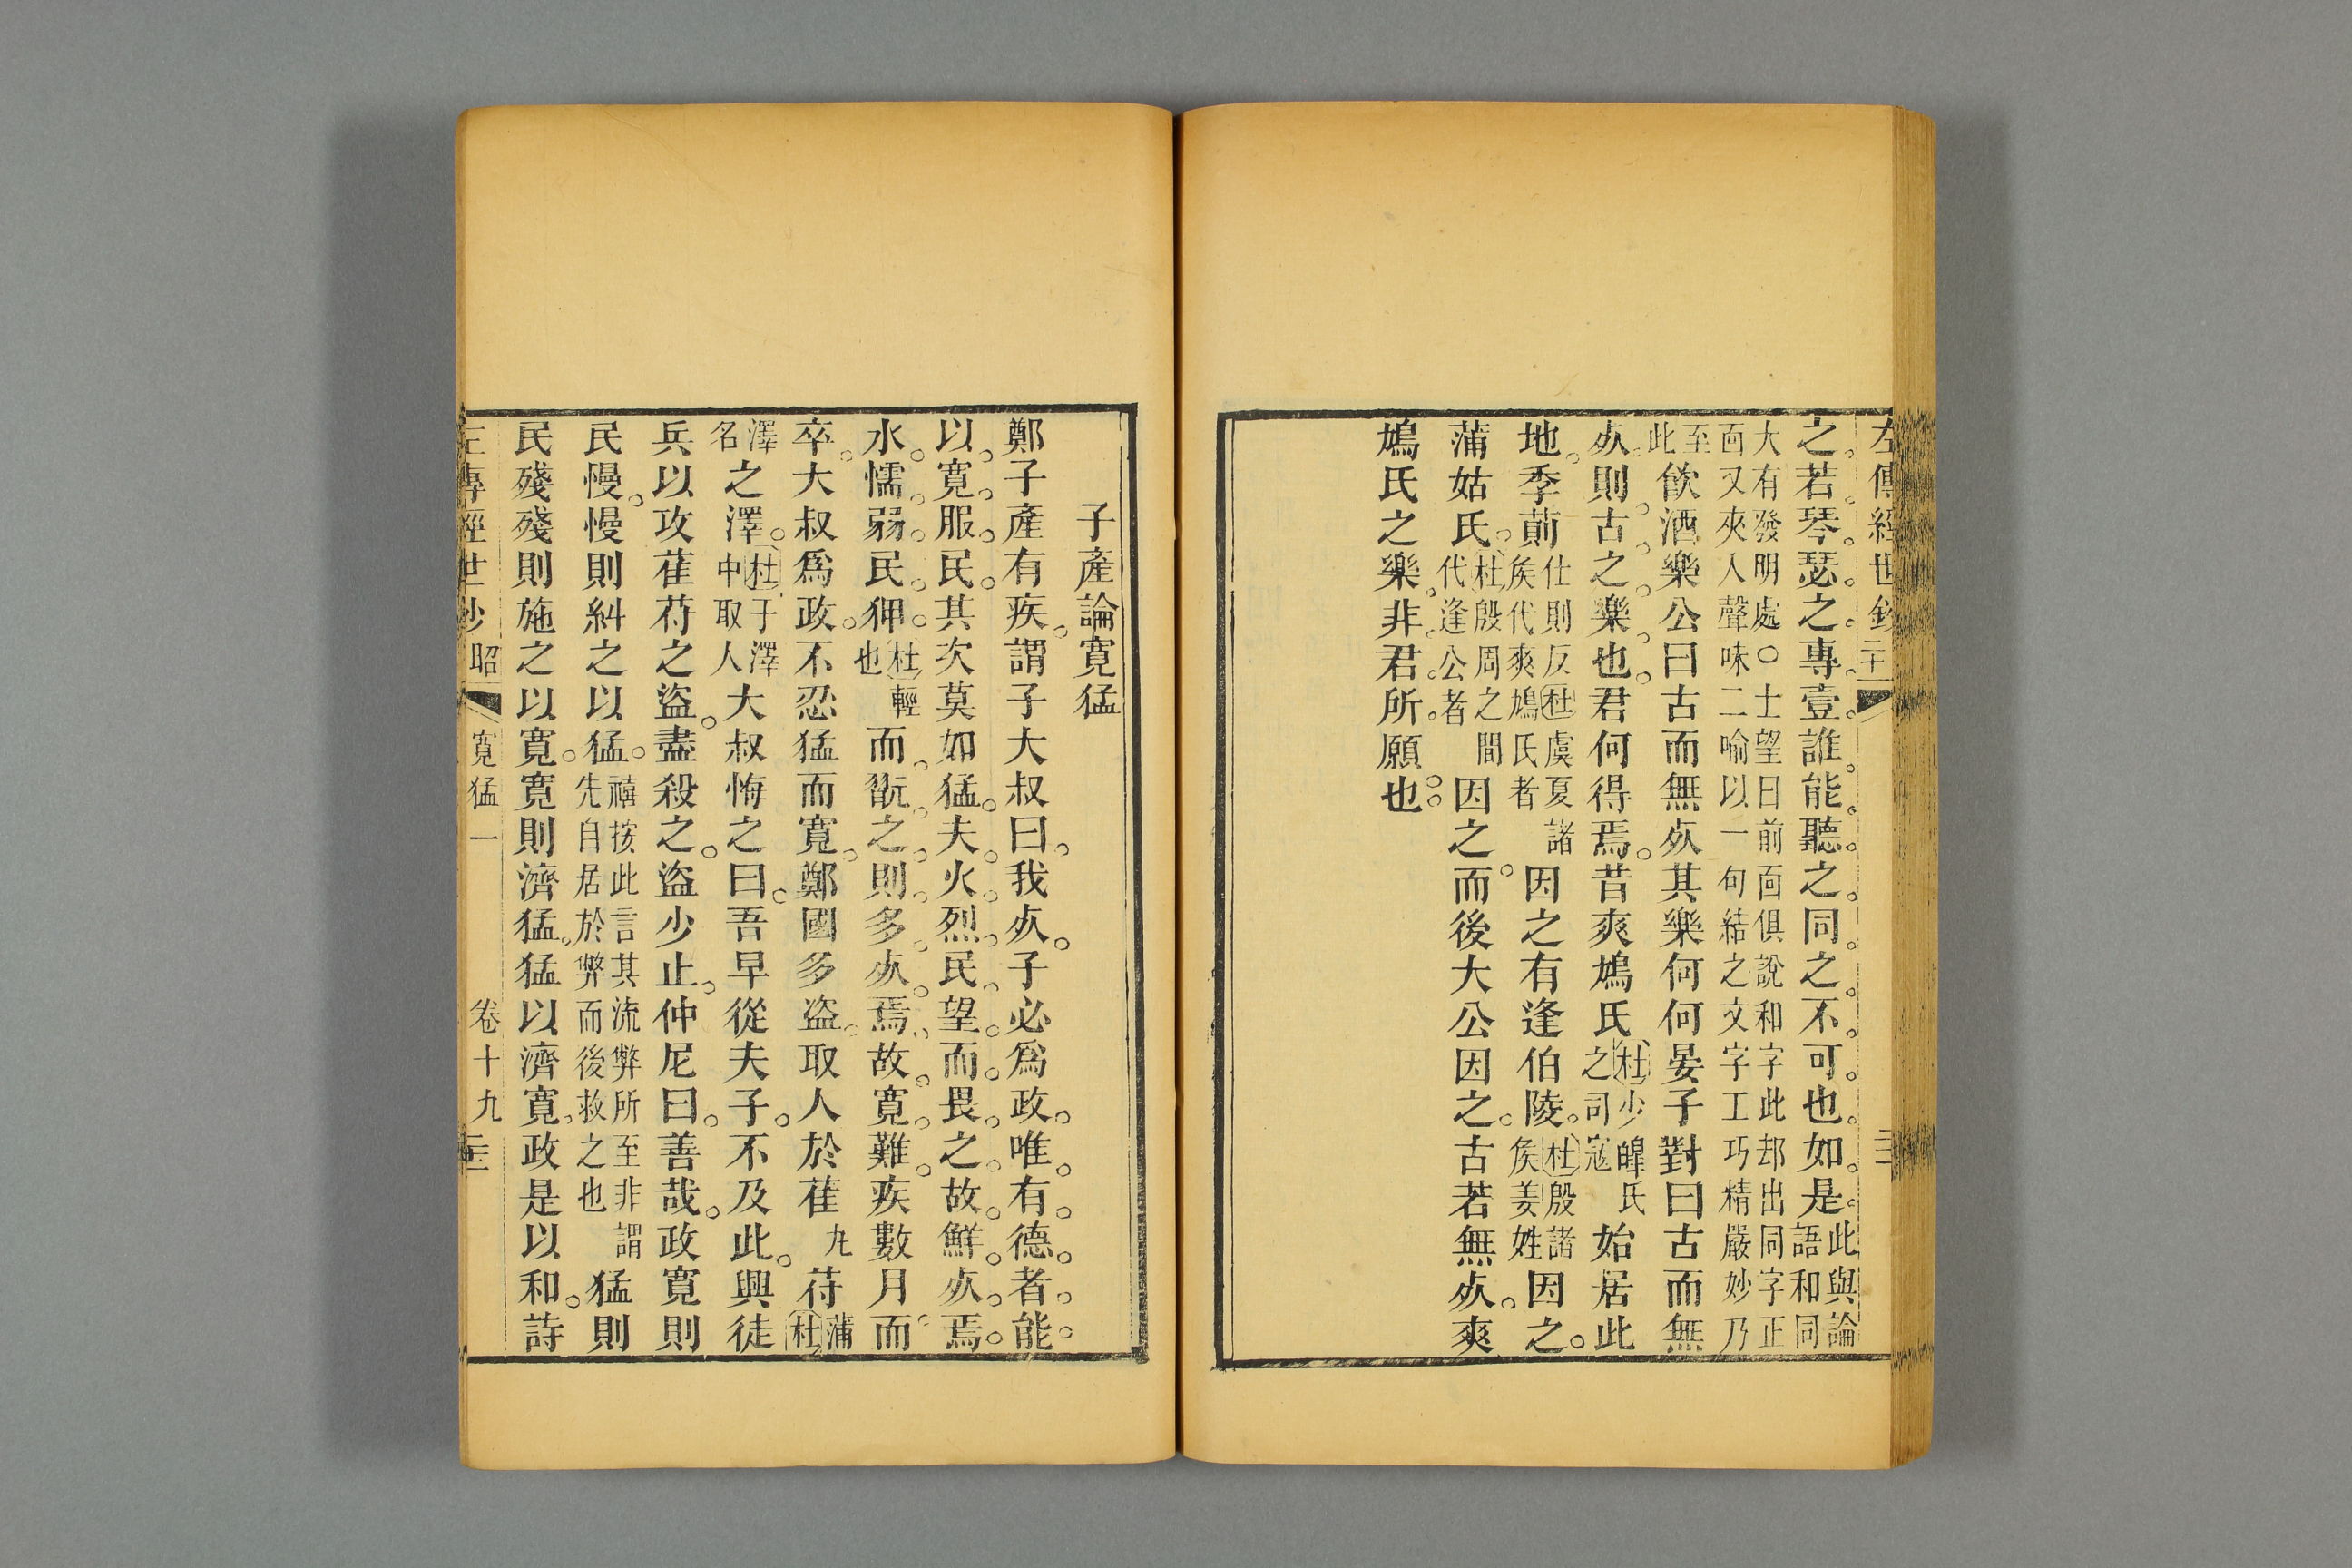 左傳經世鈔
之若琴瑟之專壹誰能聽之同之不可也如是此與論語和同
大有發明處○士望曰前靣俱說和字此却出同字正
靣又夾入聲味二喻以一句結之文字工巧精嚴妙乃
至此飲酒樂公曰古而無死其樂何何晏子對曰古而無
死則古之樂也君何得焉昔爽鳩氏杜少皥氏之司寇始居此
地季萴仕則反杜虞夏諸矦代爽鳩氏者因之有逢伯陵杜殷諸矦姜姓因之
蒲姑氏杜殷周之間代逢公者因之而後大公因之古若無死爽
鳩氏之樂非君所願也
子產論寬猛
鄭子產有疾謂子大叔曰我死子必爲政唯有德者能
以寬服民其次莫如猛夫火烈民望而畏之故鮮死焉
水懦弱民狎杜輕也而翫之則多死焉故寬難疾數月而
卒大叔爲政不忍猛而寬鄭國多盜取人於萑丸苻蒲杜
澤名之澤杜于澤中取人大叔悔之曰吾早從夫子不及此興徒
兵以攻萑苻之盜盡殺之盜少止仲尼曰善哉政寬則
民慢慢則糾之以猛禧按此言其流弊所至非謂先自居於弊而後救之也猛則
民殘殘則施之以寬寬則濟猛猛以濟寬政是以和詩
左傳經世鈔 昭 寬猛一 卷十九